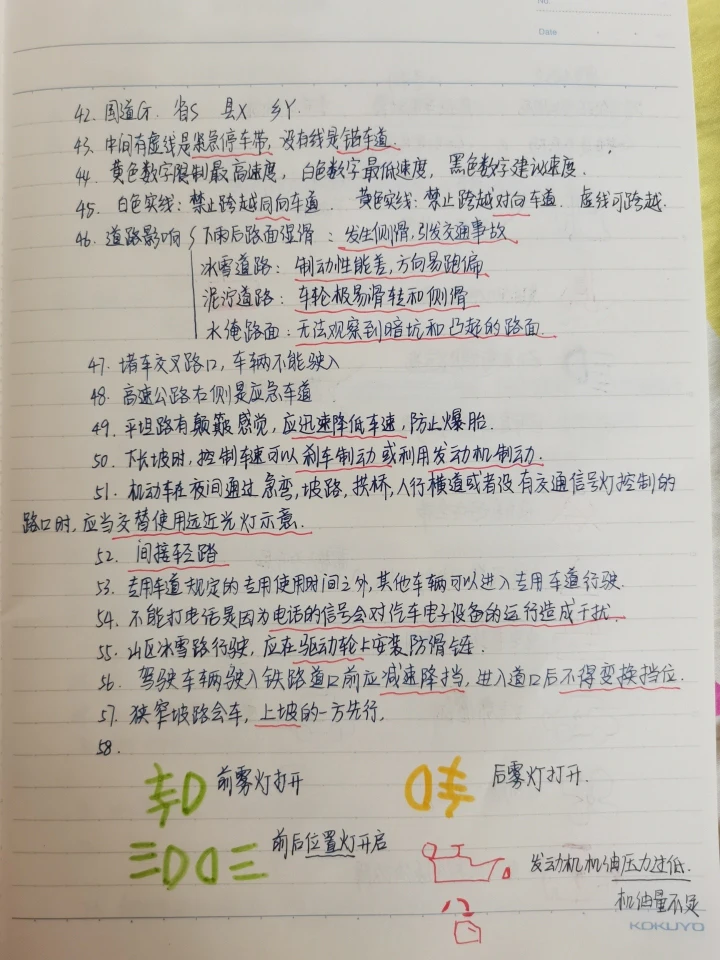 No.
Date
42. 国道G. 省S 县X 乡Y.
43. 中间有虚线是紧急停车带, 没有线是错车道.
44. 黄色数字限制最高速度, 白色数字最低速度, 黑色数字建议速度.
45. 白色实线: 禁止跨越同向车道. 黄色实线: 禁止跨越对向车道. 虚线可跨越.
46. 道路影响 { 下雨后路面湿滑: 发生侧滑, 引发交通事故
冰雪道路: 制动性能差, 方向易跑偏
泥泞道路: 车轮极易滑转和侧滑
水淹路面: 无法观察到暗坑和凸起的路面.
47. 堵车交叉路口, 车辆不能驶入
48. 高速公路右侧是应急车道
49. 平坦路有颠簸感觉, 应迅速降低车速, 防止爆胎.
50. 下长坡时, 控制车速可以刹车制动或利用发动机制动.
51. 机动车在夜间通过急弯, 坡路, 拱桥, 人行横道或者没有交通信号灯控制的
路口时, 应当交替使用远近光灯示意.
52. 间接轻踏
53. 专用车道规定的专用使用时间之外, 其他车辆可以进入专用车道行驶.
54. 不能打电话是因为电话的信号会对汽车电子设备的运行造成干扰.
55. 山区冰雪路行驶, 应在驱动轮上安装防滑链.
56. 驾驶车辆驶入铁路道口前应减速降挡, 进入道口后不得变换挡位.
57. 狭窄坡路会车, 上坡的一方先行.
58.
前雾灯打开 后雾灯打开.
前后位置灯开启
发动机机油压力过低.
机油量不足
KOKUYO